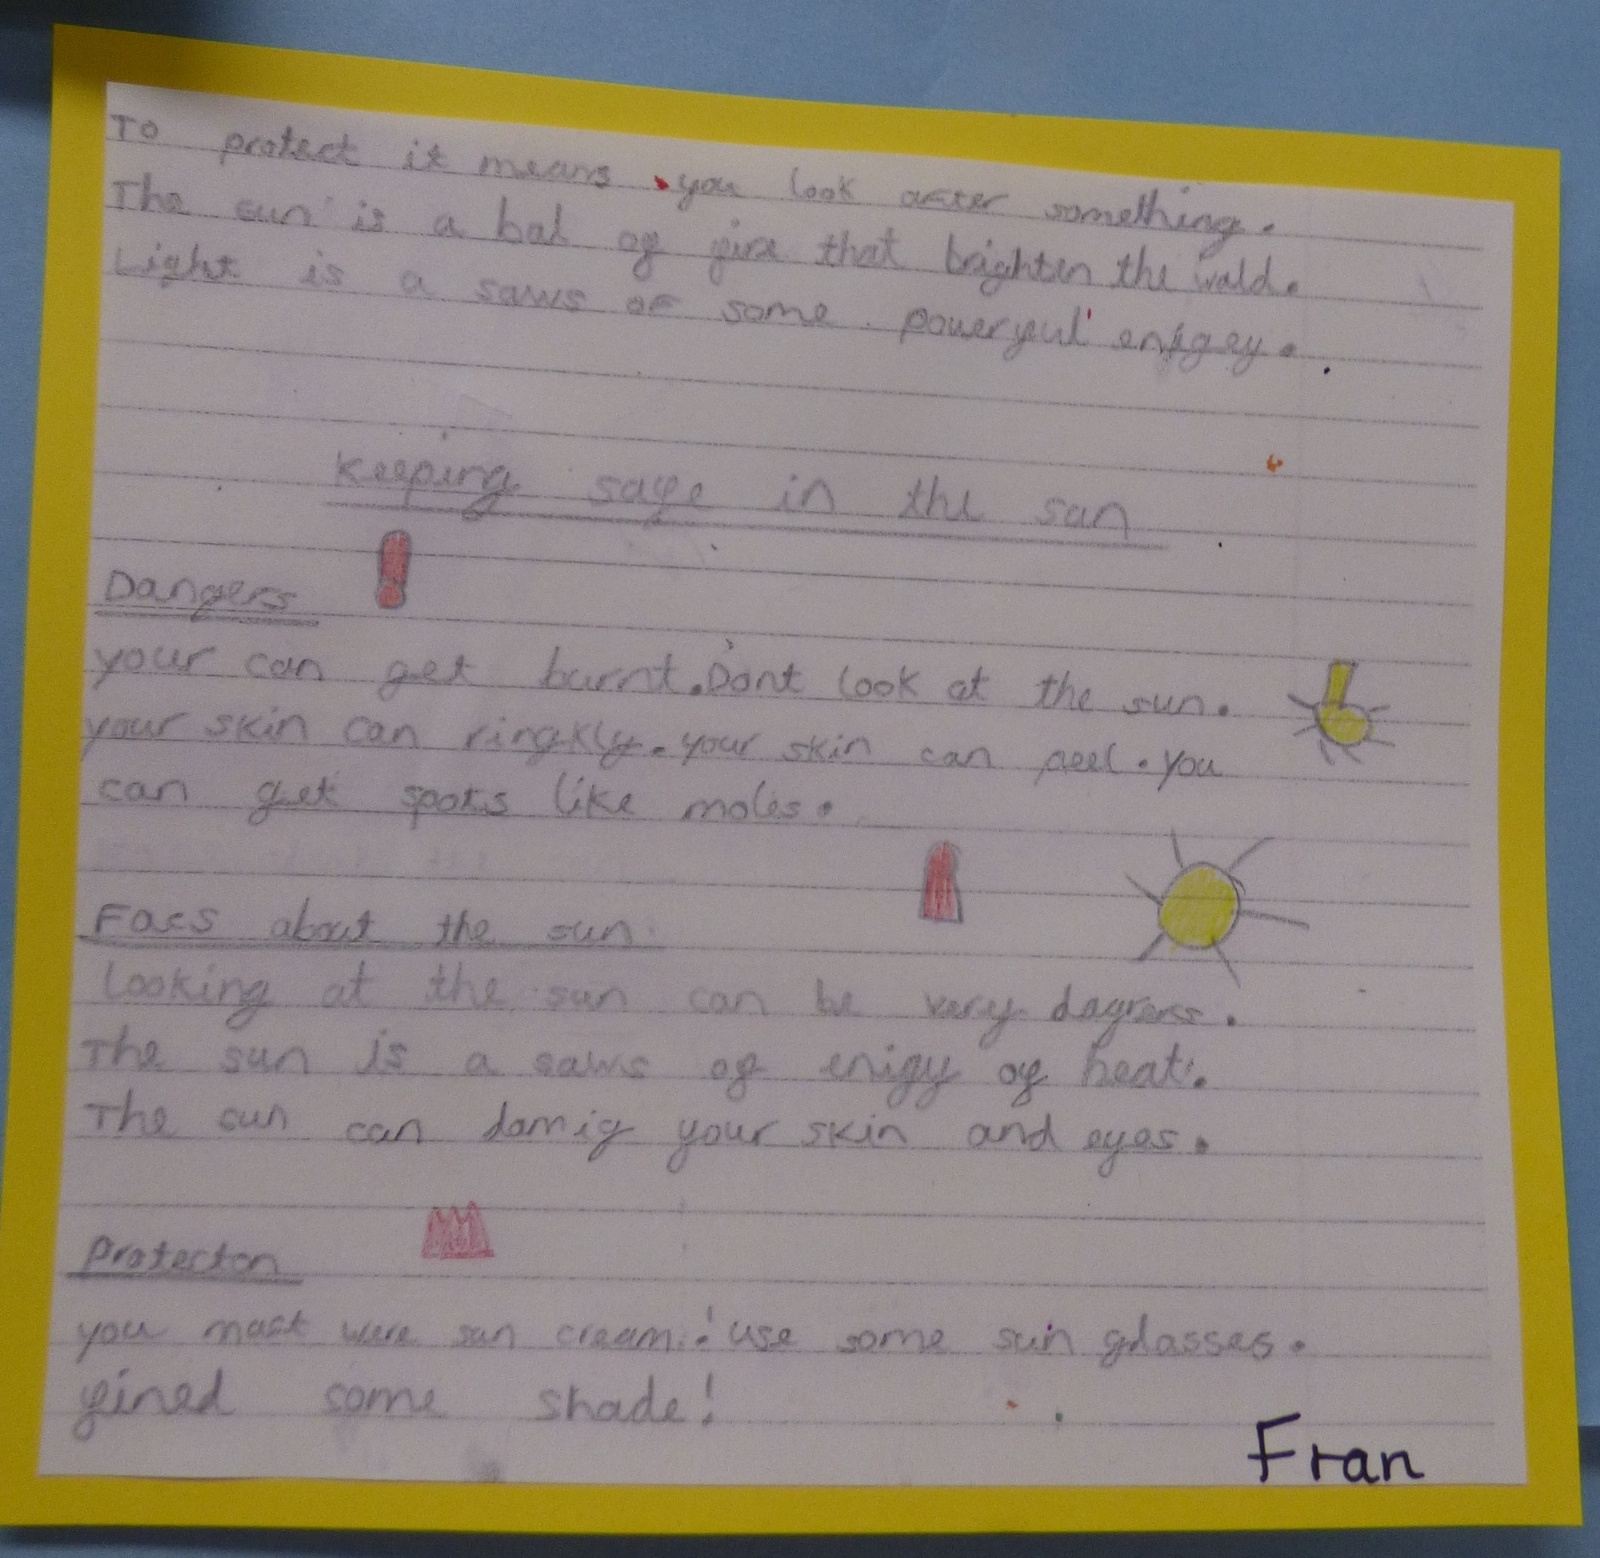 To protect it means you look after something.
The sun is a bal of fire that brighten the wald.
Light is a saws of some powerful enigey.
Keeping safe in the sun
Dangers
your can get burnt. Dont look at the sun.
your skin can ringkly. your skin can peel. you
can get spots like moles.
Facs about the sun
Looking at the sun can be very dagrerss.
The sun is a saws of enigy of heat.
The sun can damig your skin and eyes.
Protecton
you mast were sun cream! use some sun glasses.
fined some shade!
Fran